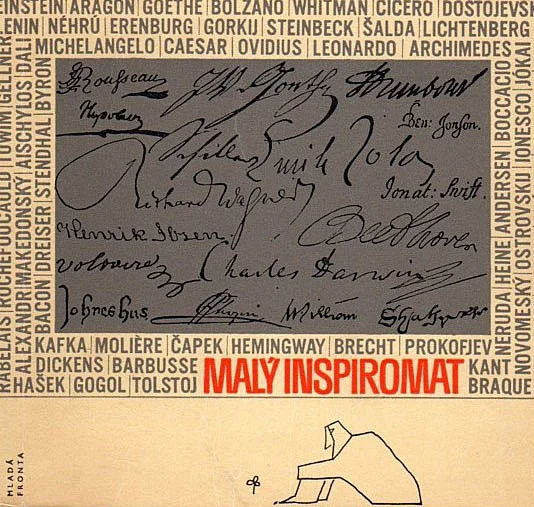 EINSTEIN|ARAGON|GOETHE|BOLZANO|WHITMAN|CICERO|DOSTOJEVSK
ENIN|NÉHRÚ|ERENBURG|GORKIJ|STEINBECK|ŠALDA|LICHTENBERG
MICHELANGELO|CAESAR|OVIDIUS|LEONARDO|ARCHIMEDES
RABELAIS|ROCHEFOUCAULD|TUWIM|GELLNER
ALEXANDR MAKEDONSKÝ|AISCHYLOS|DALI
ARAGON|DREISER|STENDHAL|BYRON
JJRousseau
JW. v. Goethe
Rembrandt
Napoleon
Ben: Jonson.
Schiller
Emile Zola
Richard Wagner
Jonat: Swift.
Henrik Ibsen.
Beethoven
Voltaire
Charles Darwin
Johnes hus
Chopin
William
NERUDA|HEINE|ANDERSEN|BOCCACCIO
NOVOMESKÝ|OSTROVSKIJ|IONESCO|JOKAI
KAFKA|MOLIÈRE|ČAPEK|HEMINGWAY|BRECHT|PROKOFJEV
DICKENS|BARBUSSE
HAŠEK|GOGOL|TOLSTOJ
MALÝ INSPIROMAT
KANT
BRAQUE
MLADÁ
FRONTA